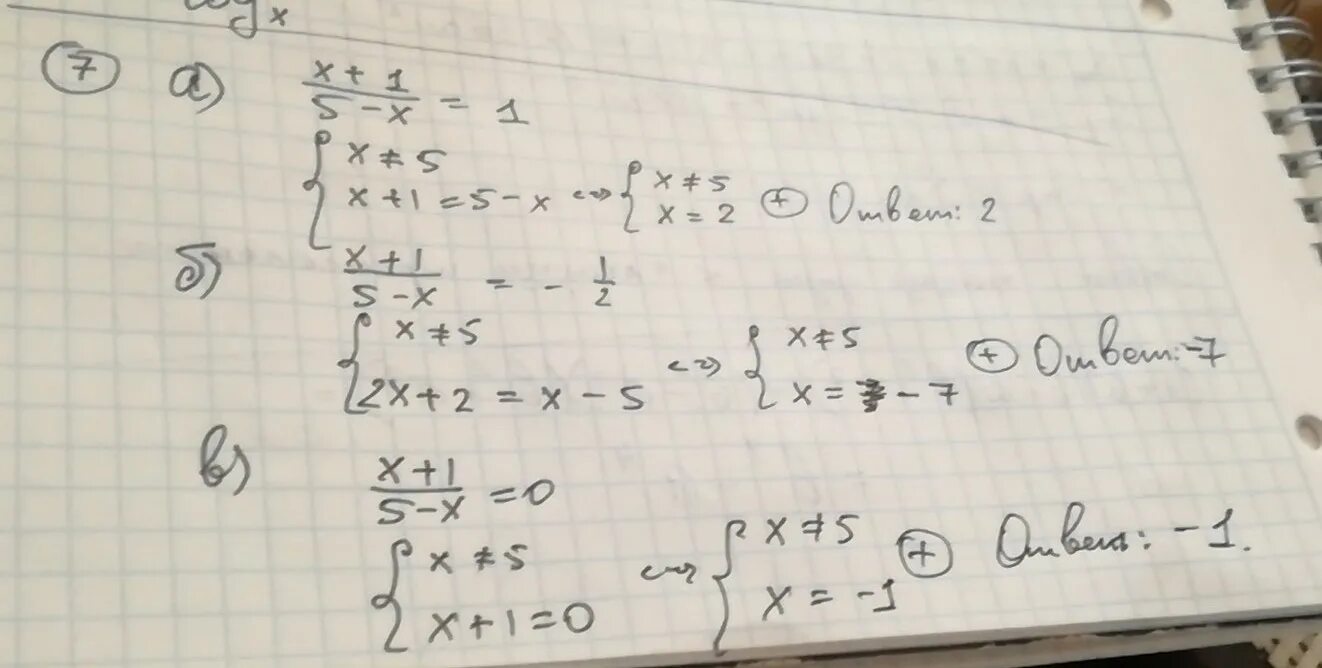 log x
7 а) x + 1 / 5 - x = 1
{ x ≠ 5
x + 1 = 5 - x <=> { x ≠ 5
x = 2 ⊕ Ответ: 2
б) x + 1 / 5 - x = - 1/2
{ x ≠ 5
2x + 2 = x - 5 <=> { x ≠ 5
x = - 7 ⊕ Ответ: -7
в) x + 1 / 5 - x = 0
{ x ≠ 5
x + 1 = 0 <=> { x ≠ 5
x = -1 ⊕ Ответ: -1.